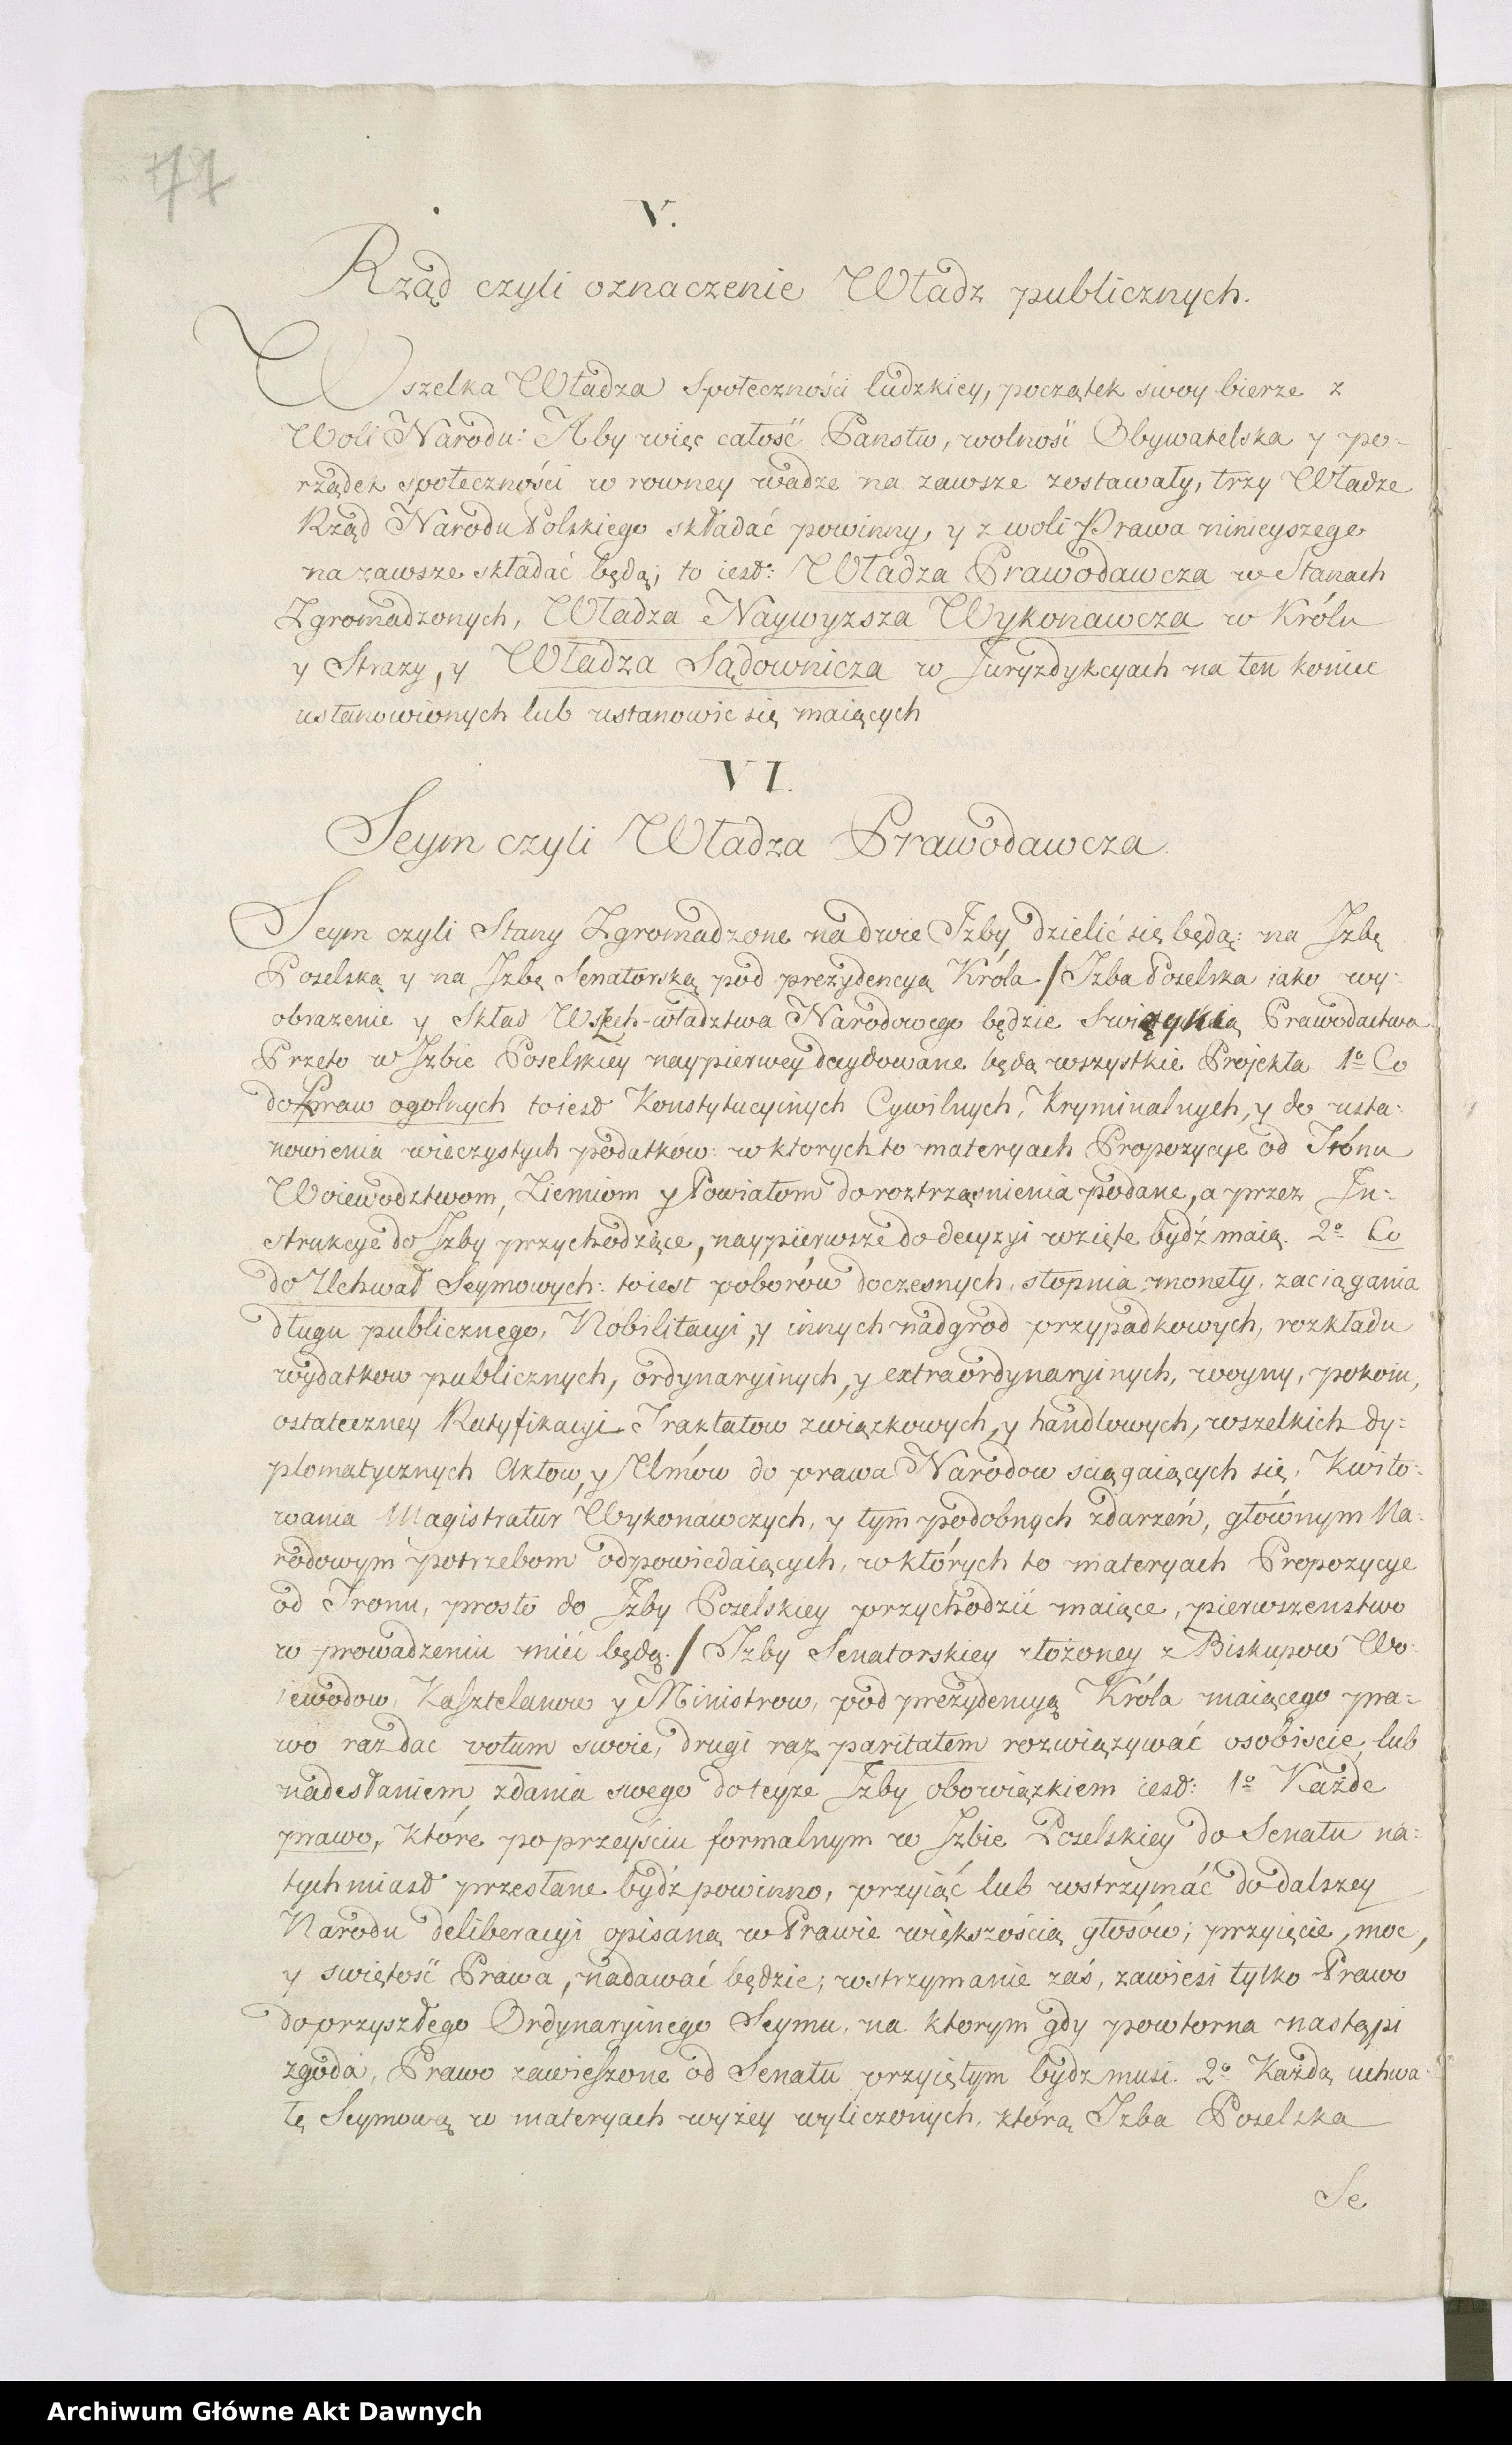 77
V.
Rząd czyli oznaczenie Władz publicznych.
Wszelka Władza społeczności ludzkiey, początek swoy bierze z
Woli Narodu: Aby więc całość Państw, wolność Obywatelska y po-
rządek społeczności w rowney wadze na zawsze zostawały, trzy Władze
Rząd Narodu Polskiego składać powinny, y z woli Prawa ninieyszego
na zawsze składać będą; to iest: Władza Prawodawcza w Stanach
Zgromadzonych, Władza Naywyzsza Wykonawcza w Królu
y Strazy, y Władza Sądownicza w Juryzdykcyach na ten koniec
ustanowionych lub ustanowic się maiących
VI.
Seym czyli Władza Prawodawcza.
Seym czyli Stany Zgromadzone na dwie Jzby dzielić się będą: na Jzbę
Poselską y na Jzbę Senatorską pod prezydencyą Króla / Jzba Poselska iako wy-
obrazenie y Skład Wszech-władztwa Narodowego będzie Swiątynią Prawodactwa
Przeto w Jzbie Poselskiey naypierwey decydowane będą wszystkie Projekta 1º Co
do Praw ogolnych toiest Konstytucyinych Cywilnych, Kryminalnych, y do usta-
nowienia wieczystych podatkow: w ktorych to materyach Propozycye od Tronu
Woiewodztwom, Ziemiom y Powiatom do roztrząsnienia podane, a przez In-
strukcye do Jzby przychodzące, naypierwsze do decyzyi wzięte bydź maią. 2º Co
do Uchwał Seymowych: toiest poborów doczesnych, stopnia monety, zaciągania
długu publicznego, Nobilitacyi, y innych nadgrod przypadkowych, rozkładu
wydatkow publicznych, ordynaryinych, y extraordynaryinych, woyny, pokoiu,
ostateczney Ratyfikacyi Traktatow związkowych, y handlowych, wszelkich dy-
plomatycznych Aktow, y Umów do prawa Narodow sciągaiących się, Kwito-
wania Magistratur Wykonawczych, y tym podobnych zdarzeń, głównym Na-
rodowym potrzebom odpowiedaiących, w których to materyach Propozycye
od Tronu, prosto do Jzby Poselskiey przychodzić maiące, pierwszenstwo
w prowadzeniu mieć będą. / Jzby Senatorskiey złożoney z Biskupow Wo-
iewodow, Kasztelanow y Ministrow, pod prezydencyą Króla maiącego pra-
wo raz dac votum swoie, drugi raz paritatem rozwiązywać osobiscie, lub
nadesłaniem zdania swego do teyże Jzby obowiązkiem iest: 1º Każde
prawo, które po przeyściu formalnym w Jzbie Poselskiey do Senatu na-
tychmiast przesłane bydź powinno, przyiąć lub wstrzymać do dalszey
Narodu deliberacyi opisaną w Prawie większością głosów; przyięcie, moc,
y swiętość Prawa, nadawać będzie; wstrzymanie zaś, zawiesi tylko Prawo
do przyszłego Ordynaryinego Seymu, na ktorym gdy powtorna nastąpi
zgoda, Prawo zawieszone od Senatu przyiętym bydz musi. 2º Każdą uchwa-
łę Seymową w materyach wyżey wyliczonych, którą Jzba Poselska
Se
Archiwum Główne Akt Dawnych